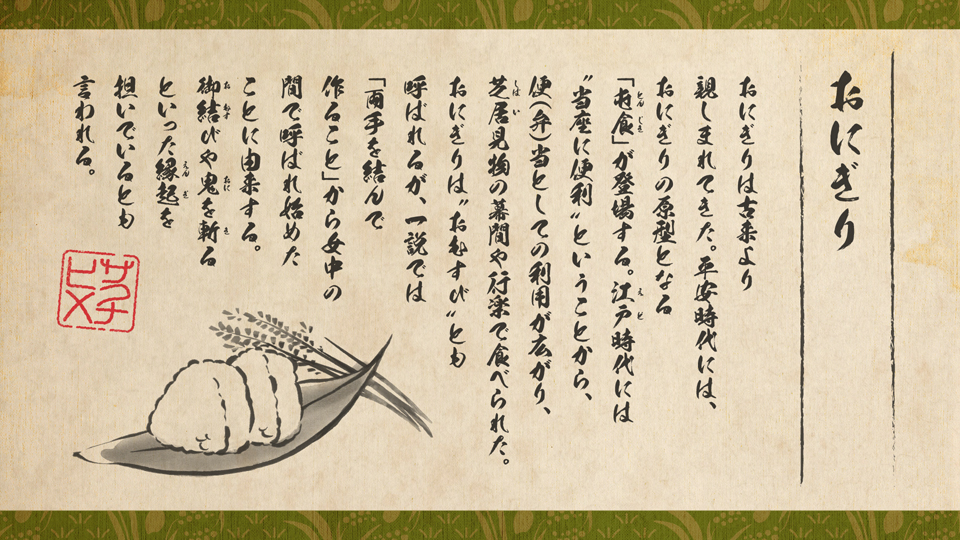 おにぎり
おにぎりは古来より
親しまれてきた。平安時代には、
おにぎりの原型となる
「屯食」が登場する。江戸時代には
〝当座に便利〟ということから、
便(弁)当としての利用が広がり、
芝居見物の幕間や行楽で食べられた。
おにぎりは〝おむすび〟とも
呼ばれるが、一説では
「両手を結んで
作ること」から女中の
間で呼ばれ始めた
ことに由来する。
御結びや鬼を斬る
といった縁起を
担いでいるとも
言われる。
サクチ
ヒメ